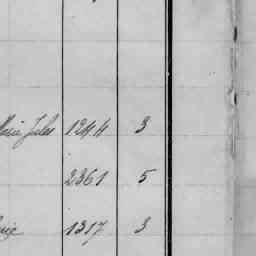 Jules 1244 3
2361 5
1317 3